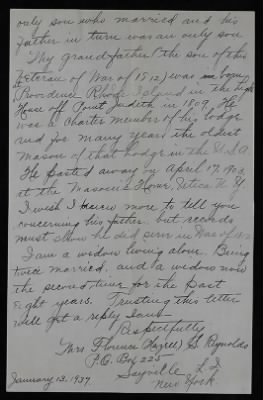 only son who married and his
father in turn was an only son
My grandfather (the son of this
Veteran of War of 1812) was born
at Providence Rhode Island in the light
House off Point Judith in 1809. He
was a Charter member of his lodge
and for many years the oldest
Mason of that Lodge in the U.S.A.
He passed away by April 17, 190
at the Masonic Home, Utica N.Y.
I wish I knew more to tell you
concerning his father but records
must show he did serve in War of 1812
I am a widow living alone. Being
twice married, and a widow now
the second time for the past
eight years. Trusting this letter
will get a reply I am
Respectfully
Mrs. Florence (Hazell) S. Reynolds
P.O. Box 225
Sayville L.I.
New York.
January 13, 1937.